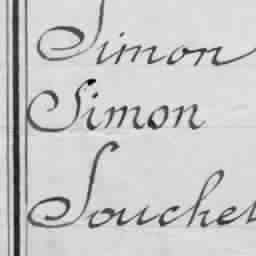 Simon
Simon
Souchet